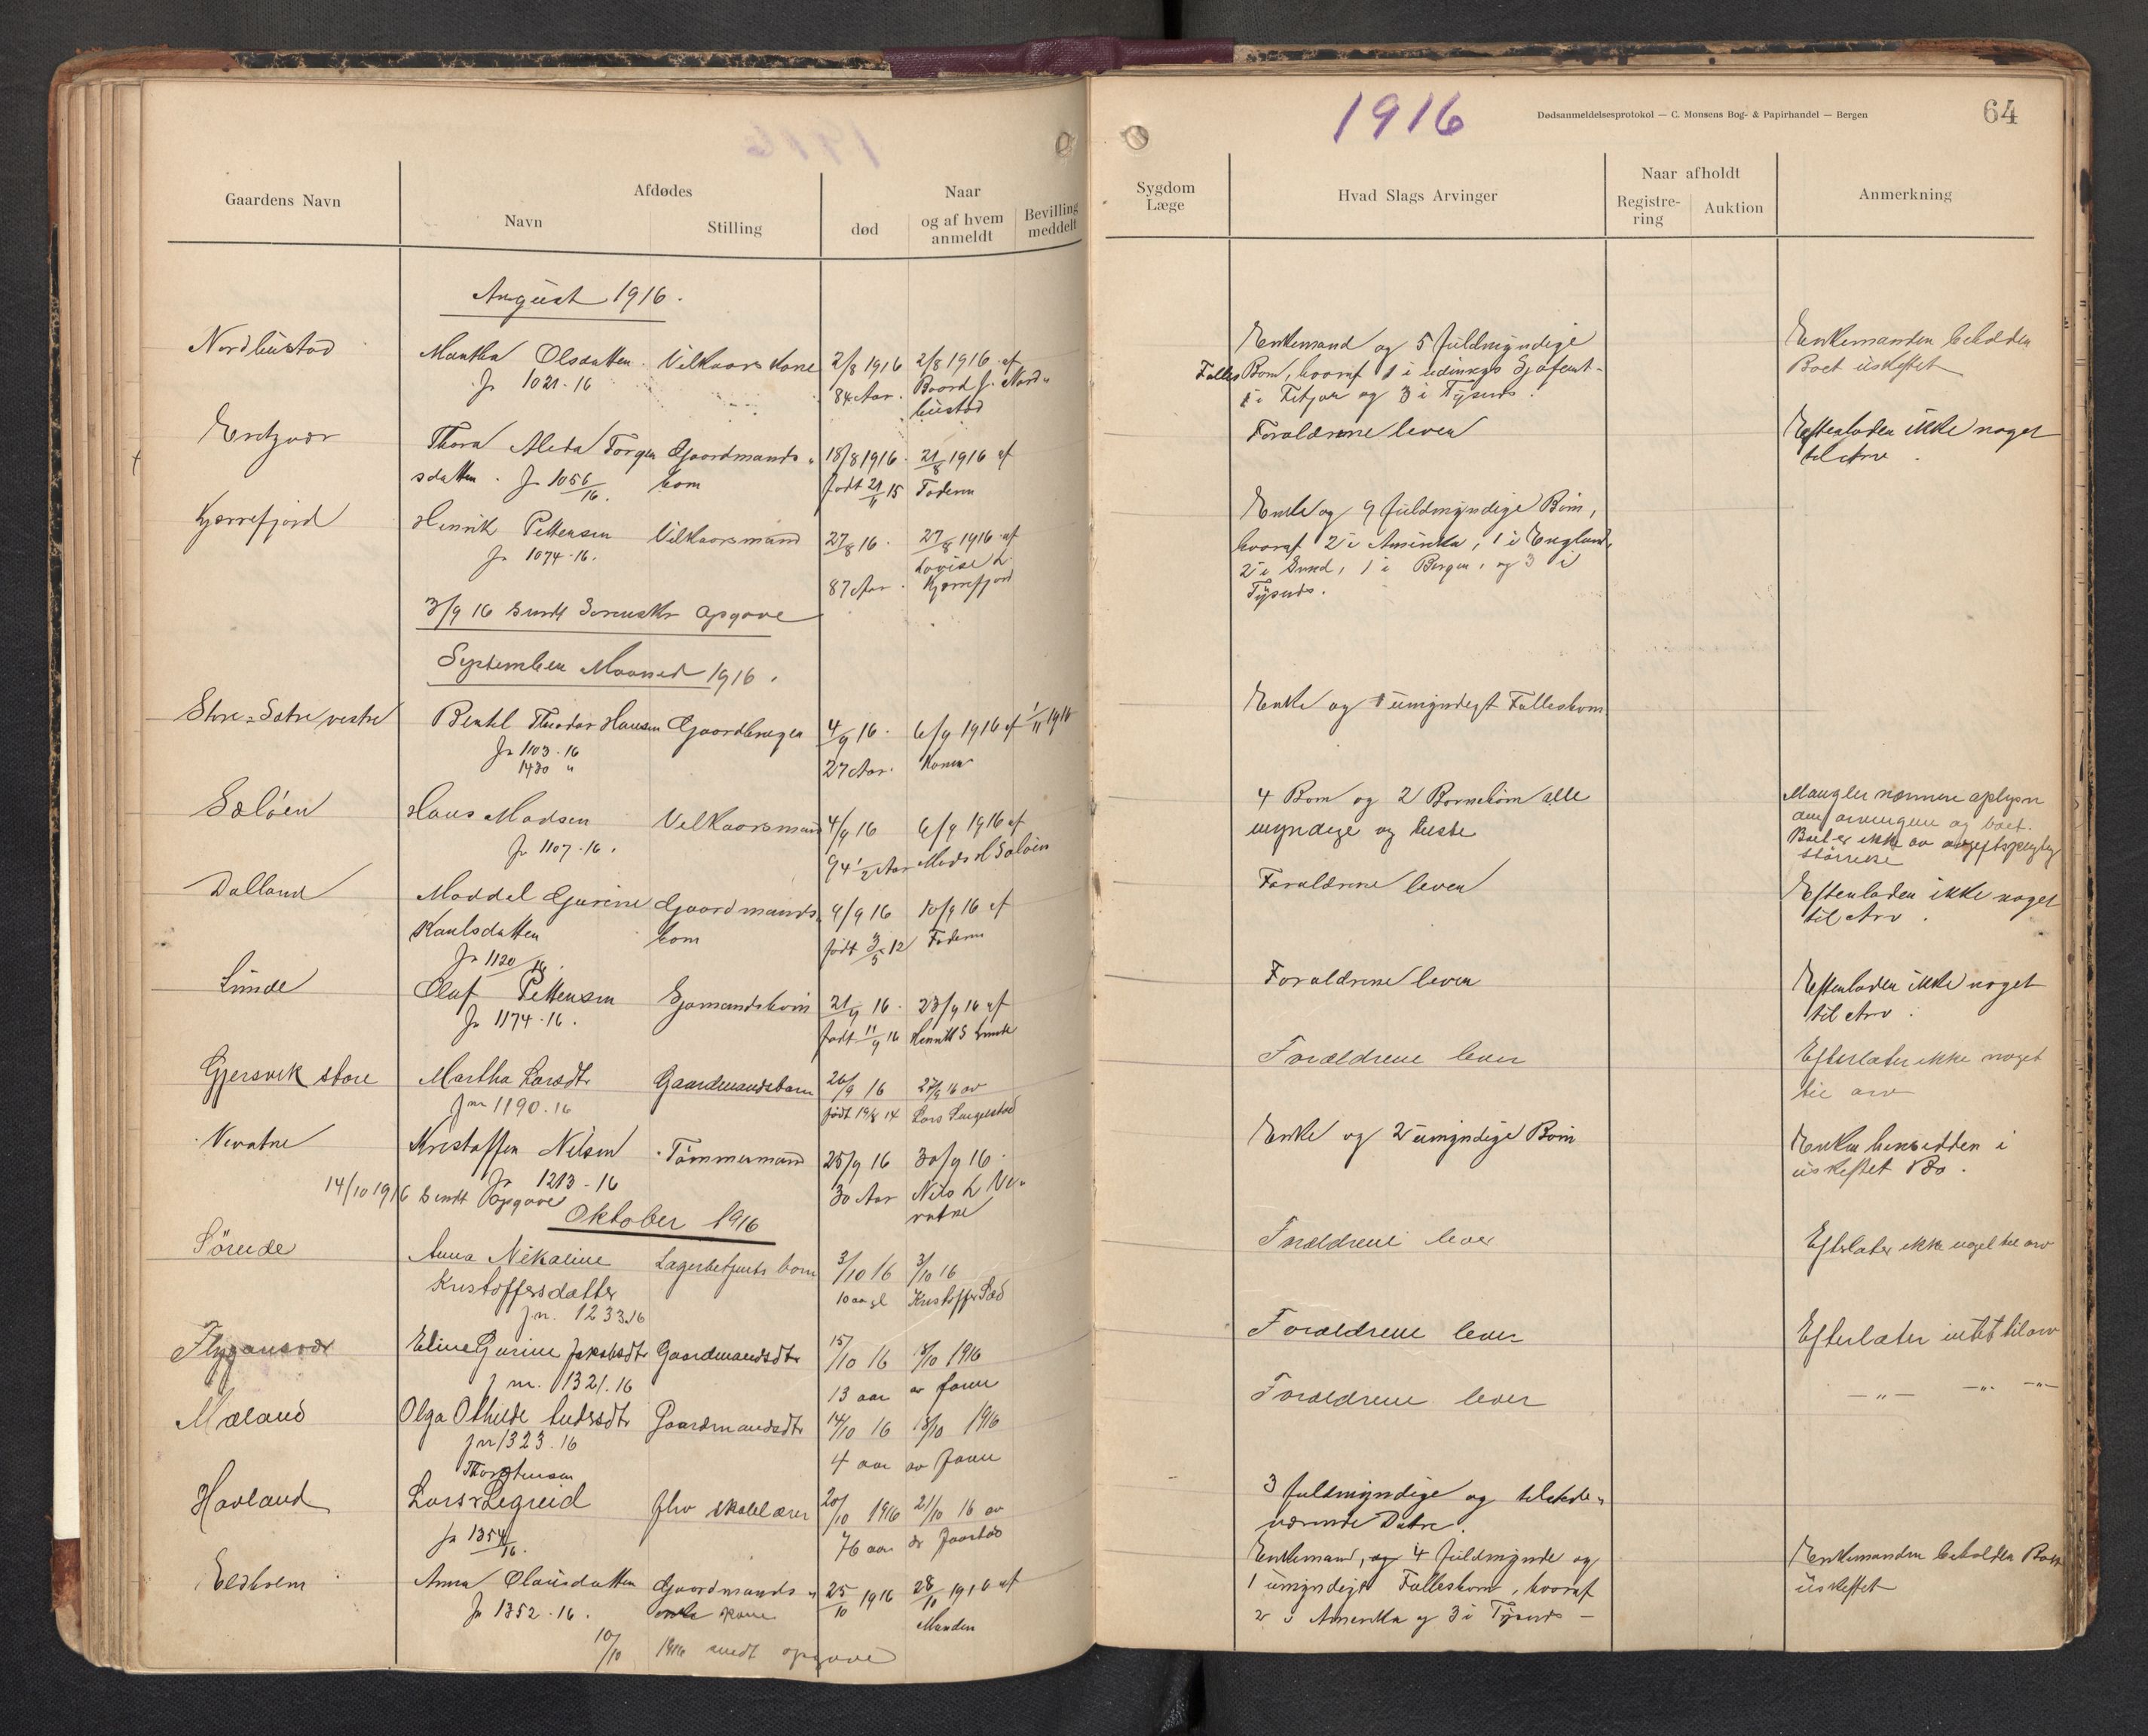 1916
Dødsanmeldelsesprotokol — C. Monsens Bog- & Papirhandel — Bergen
64
Gaardens Navn
Afdødes
Navn
Stilling
Naar
død
og af hvem anmeldt
Bevilling meddelt
Sygdom Læge
Hvad Slags Arvinger
Naar afholdt
Registrering
Auktion
Anmerkning
August 1916.
Nordhustad Martha Olsdatter Vilkaars Kone 2/8 1916 2/8 1916 af Enkemand og 5 fuldmyndige Enkemanden beholder
Jr 1021-16 84 Aar. Baard J. Nord- Fælles Børn, hvoraf 1 i Boet uskiftet
hustad 1 i Fitjar og 3 i Tysnes.
Thora Alida Torger Gaardmands- 18/8 1916. 21/8 1916 af Forældrene lever Efterlader ikke noget
sdatter. Jr 1056/16. barn født 15 Faderen til Arv.
Kjærrefjord Henrik Pettersen Vilkaarsmand 27/8 16. 27/8 1916 af Enke og 9 fuldmyndige Børn,
Jr 1074-16. Lovise L. hvoraf 2 i Amerika, 1 i England,
87 Aar. Kjærrefjord 2 i Sund, 1 i Bergen, og 3 i
Tysnes.
3/9 16 sendt Opgave
September Maaned 1916.
Store-Sætre vestre Bertel Theodor Hansen Gaardbruger 4/9 16. 6/9 1916 af 1/11 1916 Enke og 1 umyndigt Fællesbarn
Jr 1103-16 27 Aar. Konen
1430 "
Søløen Hans Madsen Vilkaarsmand 4/9 16 6/9 1916 af 4 Børn og 2 Børnebørn alle Mangler nærmere oplysn
Jr 1107-16. 94 1/2 Aar Mads H Søløen myndige og arvingene og boet.
Boet er ikke av
størrelse
Dalland Maddel Gurine Gaardmands- 9/9 16 10/9 16 af Forældrene lever Efterlader ikke noget
Karlsdatter barn født 3/5 12 Faderen til Arv.
Jr 1120/16.
Lunde Olaf Pettersen Sjømandsbarn 21/9 16. 23/9 16 af Forældrene lever Efterlader ikke noget
Jr 1174-16. født 11/9 16 Henrik S Lunde til Arv.
Gjersvik store Martha Larsdtr Gaardmandsbarn 26/9 16 27/9 16 av Forældrene lever Efterlater ikke noget
Jnr 1190.16 født 19/8 14 Lars til arv
Vevatne Kristoffer Nilsen Tømmermand 25/9 16 30/9 16. Enke og 2 umyndige Børn Enken hensidder i
Jr 1213-16 30 Aar Nils L Ve- uskiftet Bo.
vatne
14/10 1916 sendt Opgave
Oktober 1916
Anna Nikoline Lagerbetjents barn 3/10 16 3/10 16 Forældrene lever Efterlater ikke noget til arv
Kristoffersdatter 10 Kristoffer
jn. 1233.16
Flygansvær Eline Gurine Jakobsdtr Gaardmandsdtr 15/10 16 18/10 1916 Forældrene lever Efterlater intet til arv
jnr. 1321.16 13 aar av faren
Mæland Olga Othilde Andersdtr Gaardmandsdtr 14/10 16 18/10 1916 Forældrene lever — " — — " —
jnr 1323.16 4 aar av faren
Thorstensen
Havland Lars Legreid fhv skolelærer 20/10 1916 21/10 16 av 3 fuldmyndige og tilstede-
Jr 1354/16. 76 aar værende Døtre.
Eldholm Anna Olausdatter Gaardmands- 25/10 1916 28/10 1916 af Enkemand, og 4 fuldmynde og Enkemanden beholder Boet
Jr 1352-16. kone Manden 1 umyndigt Fællesbarn, hvoraf uskiftet
2 i Amerika og 3 i Tysnes —
10/10 1916 sendt opgave